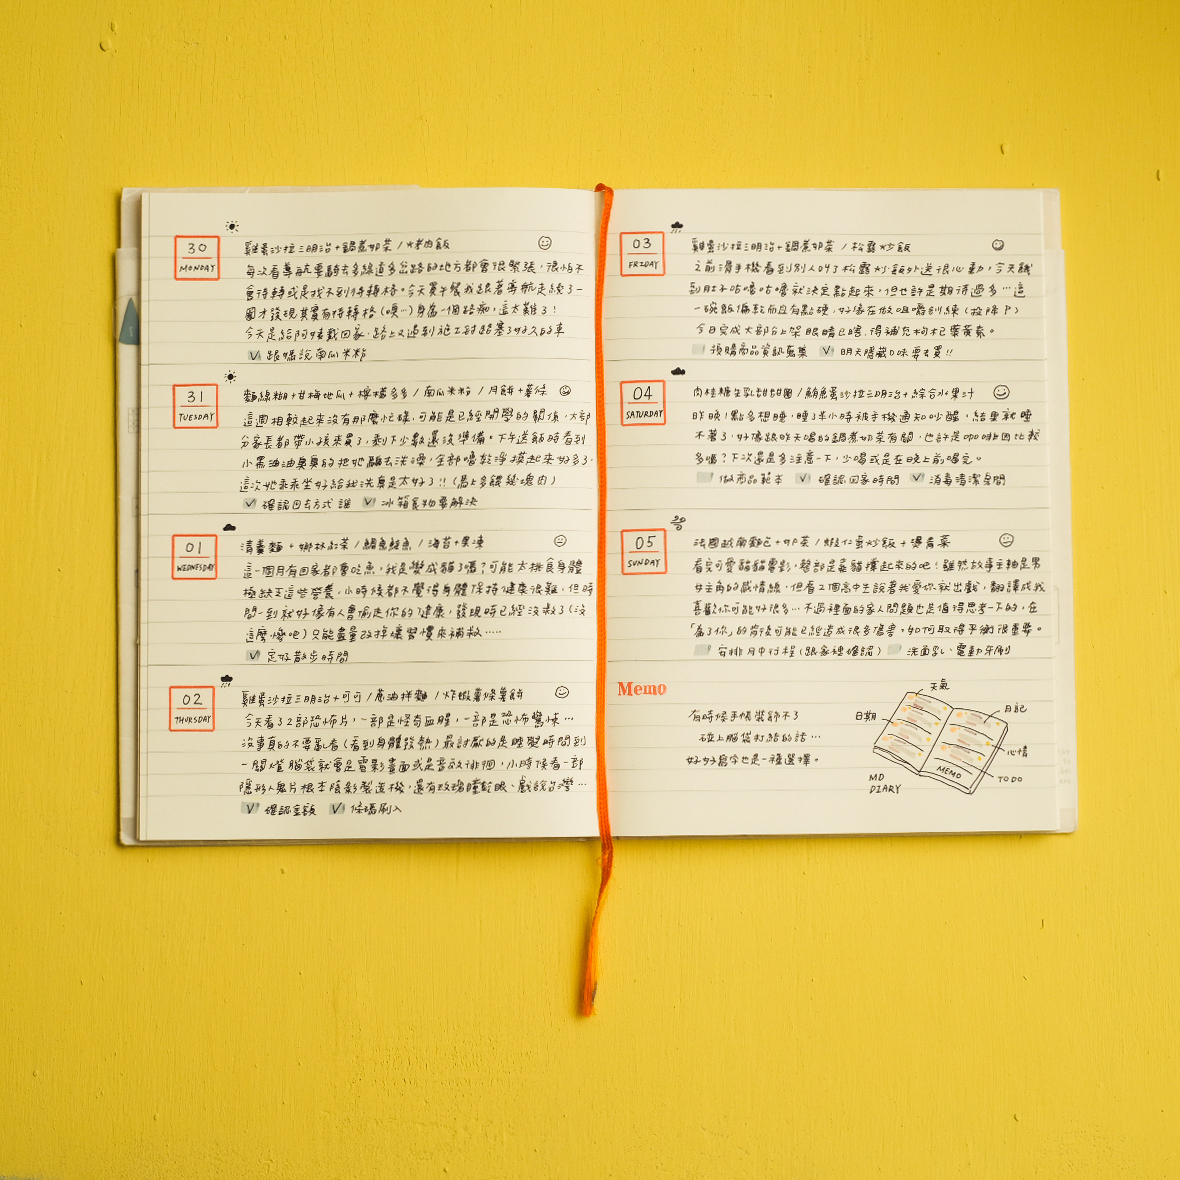 30
MONDAY
雞蛋沙拉三明治+鍋煮奶茶/烤肉飯
每次看導航要騎去多線道多岔路的地方都會很緊張,很怕不
會待轉或是找不到待轉格。今天買午餐我跟著導航走繞了一
圈才發現其實有待轉格(唉…)身為一個路痴,這太難了!
今天是給阿姨載回家,路上又遇到施工封路塞3好久的車
跟媽說南瓜米粉
31
TUESDAY
麵線糊+甘梅地瓜+檸檬多多/南瓜米粉/月餅+薯條
這週相較起來沒有那麼忙碌,可能是已經開學的關係,大部
分家長都帶小孩來買了,剩下少數還沒準備。下午送飯時看到
小黑油油臭臭的把牠騙去洗澡,全部嚕乾淨摸起來好多了.
這次牠乖乖坐好給我洗真是太好了!!(馬上多餵幾塊肉)
確認回去方式 誰
冰箱食物要解決
01
WEDNESDAY
清羹麵+鄉林紅茶/鯛魚鮭魚/海苔+果凍
這一個月有回家都會吃魚,我是變成貓了嗎?可能太挑食身體
極缺乏這些營養,小時候都不覺得身體保持健康很難,但時
間一到就好像有人會偷走你的健康,發現時已經沒救了(沒
這麼慘吧)只能盡量改掉壞習慣來補救……
定好散步時間
02
THURSDAY
雞蛋沙拉三明治+可可/蔥油拌麵/炸蝦薯條薯餅
今天看32部恐怖片,一部是怪奇血腥,一部是恐怖驚悚…
沒事真的不要亂看(看到身體發熱)最討厭的是睡覺時間到
一關燈腦袋就會是電影畫面或是音效徘徊,小時候看一部
隱形人鬼片根本陰影製造機,還有玫瑰瞳鈴眼、戲說台灣…
確認金額
條碼刷入
03
FRIDAY
雞蛋沙拉三明治+鍋煮奶茶/松露炒飯
之前滑手機看到別人叫3松露炒飯外送很心動,今天餓
到肚子咕嚕咕嚕就決定點起來,但也許是期待過多…這
一碗飯偏乾而且有點硬,好像在做咀嚼訓練(投降?)
今日完成大部分上架眼睛已瞎,得補充枸杞葉黃素。
預購商品資訊蒐集
明天隱藏口味要去買!!
04
SATURDAY
肉桂糖生乳甜甜圈/鮪魚蛋沙拉三明治+綜合水果汁
昨晚1點多想睡,睡3半小時被手機通知吵醒,結果就睡
不著了,好像跟昨天喝的鍋煮奶茶有關,也許是咖啡因比較
多嗎?下次還是多注意一下,少喝或是在晚上前喝完。
做商品範本
確認回家時間
消毒清潔房間
05
SUNDAY
法國越南麵包+奶茶/蝦仁蛋炒飯+燙青菜
看完可愛貓貓電影,整部是靠貓撐起來的吧!雖然故事主軸是男
女主角的感情線,但看2個高中生說著我愛你就出戲,翻譯成我
喜歡你可能好很多…不過裡面的家人問題也是值得思考一下的,在
「為了你」的背後可能已經造成很多傷害,如何取得平衡很重要。
安排月中行程(跟家裡確認)
洗面乳、電動牙刷
Memo
有時候手帳裝飾不了
碰上腦袋打結的話…
好好寫字也是一種選擇。
天氣
日期
日記
心情
TO DO
MEMO
MD
DIARY